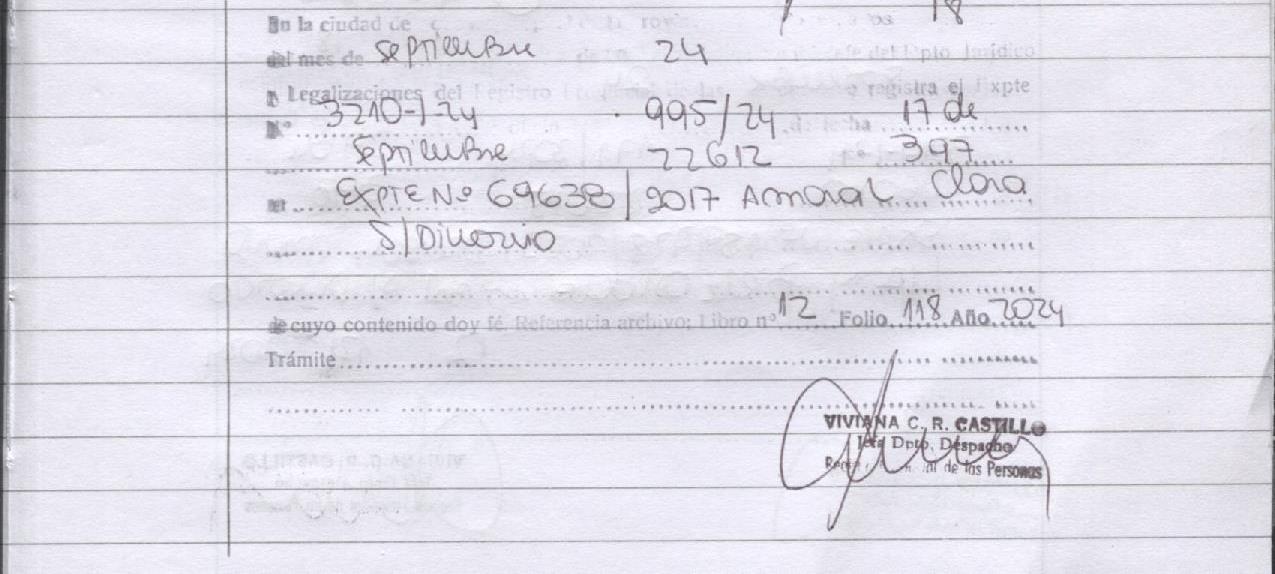 En la ciudad de 18
del mes de septiembre 24 Jefe del Dpto Jurídico
Legalizaciones del Registro Provincial de las registra el Expte
Nº 3210-J-24 995/24 de fecha 17 de
septiembre 22612 397
EXPTE Nº 69638/2017 Amaral Clara
S/Divorcio
de cuyo contenido doy fé. Referencia archivo; Libro nº 12 Folio 118 Año 2024
Trámite
VIVIANA C. R. CASTILLO
Jefa Dpto. Despacho
de las Personas